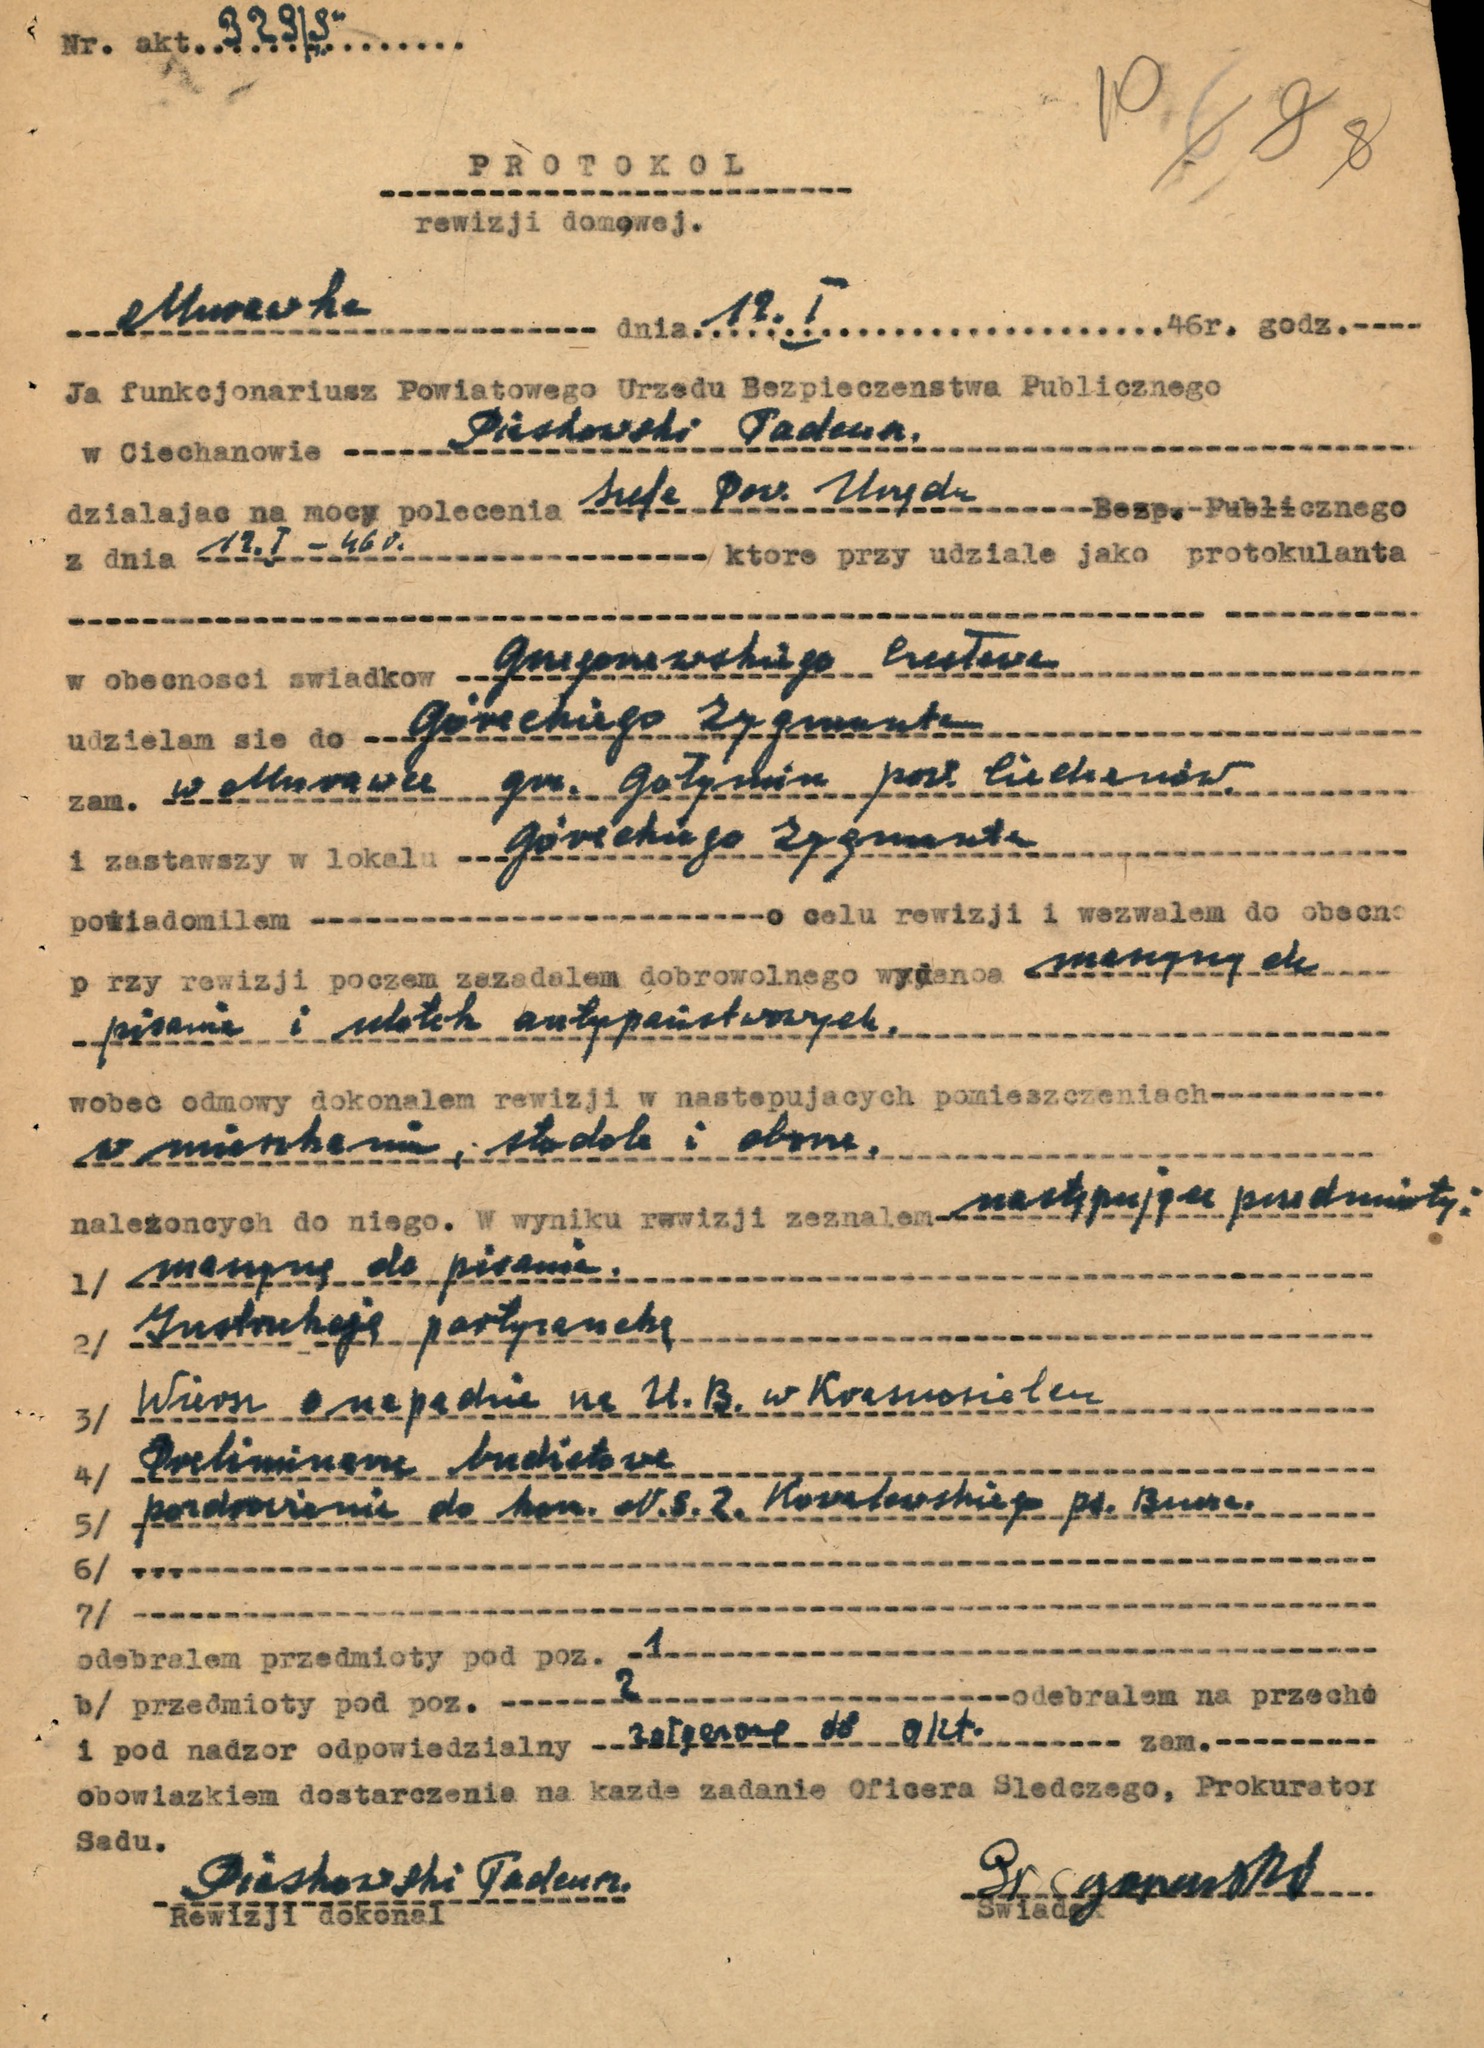 Nr. akt. 329/5
10 6 8 8
PROTOKOL
rewizji domowej.
Murawka dnia 12. I 46r. godz.
Ja funkcjonariusz Powiatowego Urzedu Bezpieczenstwa Publicznego
w Ciechanowie Piaskowski Tadeusz.
dzialajac na mocy polecenia szefa Pow. Urzędu Bezp. Publicznego
z dnia 12. I - 46 r. ktore przy udziale jako protokulanta
w obecnosci swiadkow Grzegorzewskiego Czesława
udzielam sie do Góreckiego Zygmunta
zam. w Murawce gm. Gołymin pow. Ciechanów.
i zastawszy w lokalu Góreckiego Zygmunta
powiadomilem o celu rewizji i wezwalem do obecno
p rzy rewizji poczem zazadalem dobrowolnego wydanoa maszyny do
pisania i ulotek antypaństwowych.
wobec odmowy dokonalem rewizji w nastepujacych pomieszczeniach
w mieszkaniu, stodole i oborze.
należoncych do niego. W wyniku rewizji zeznalem następujące przedmioty:
1/ maszynę do pisania.
2/ Instrukcję partyzancką
3/ Wiersz o napadzie na U.B. w Krasnosielcu
4/ Preliminarz budżetowe
5/ pozdrowienie do kom. N.S.Z. Kowalewskiego ps. Bura.
6/
7/
odebralem przedmioty pod poz. 1
b/ przedmioty pod poz. 2 odebralem na przecho
i pod nadzor odpowiedzialny załączone do akt. zam.
obowiazkiem dostarczenia na kazde zadanie Oficera Sledczego, Prokurator
Sadu.
Piaskowski Tadeusz. Grzegorzewski
Rewizji dokonal Swiadek